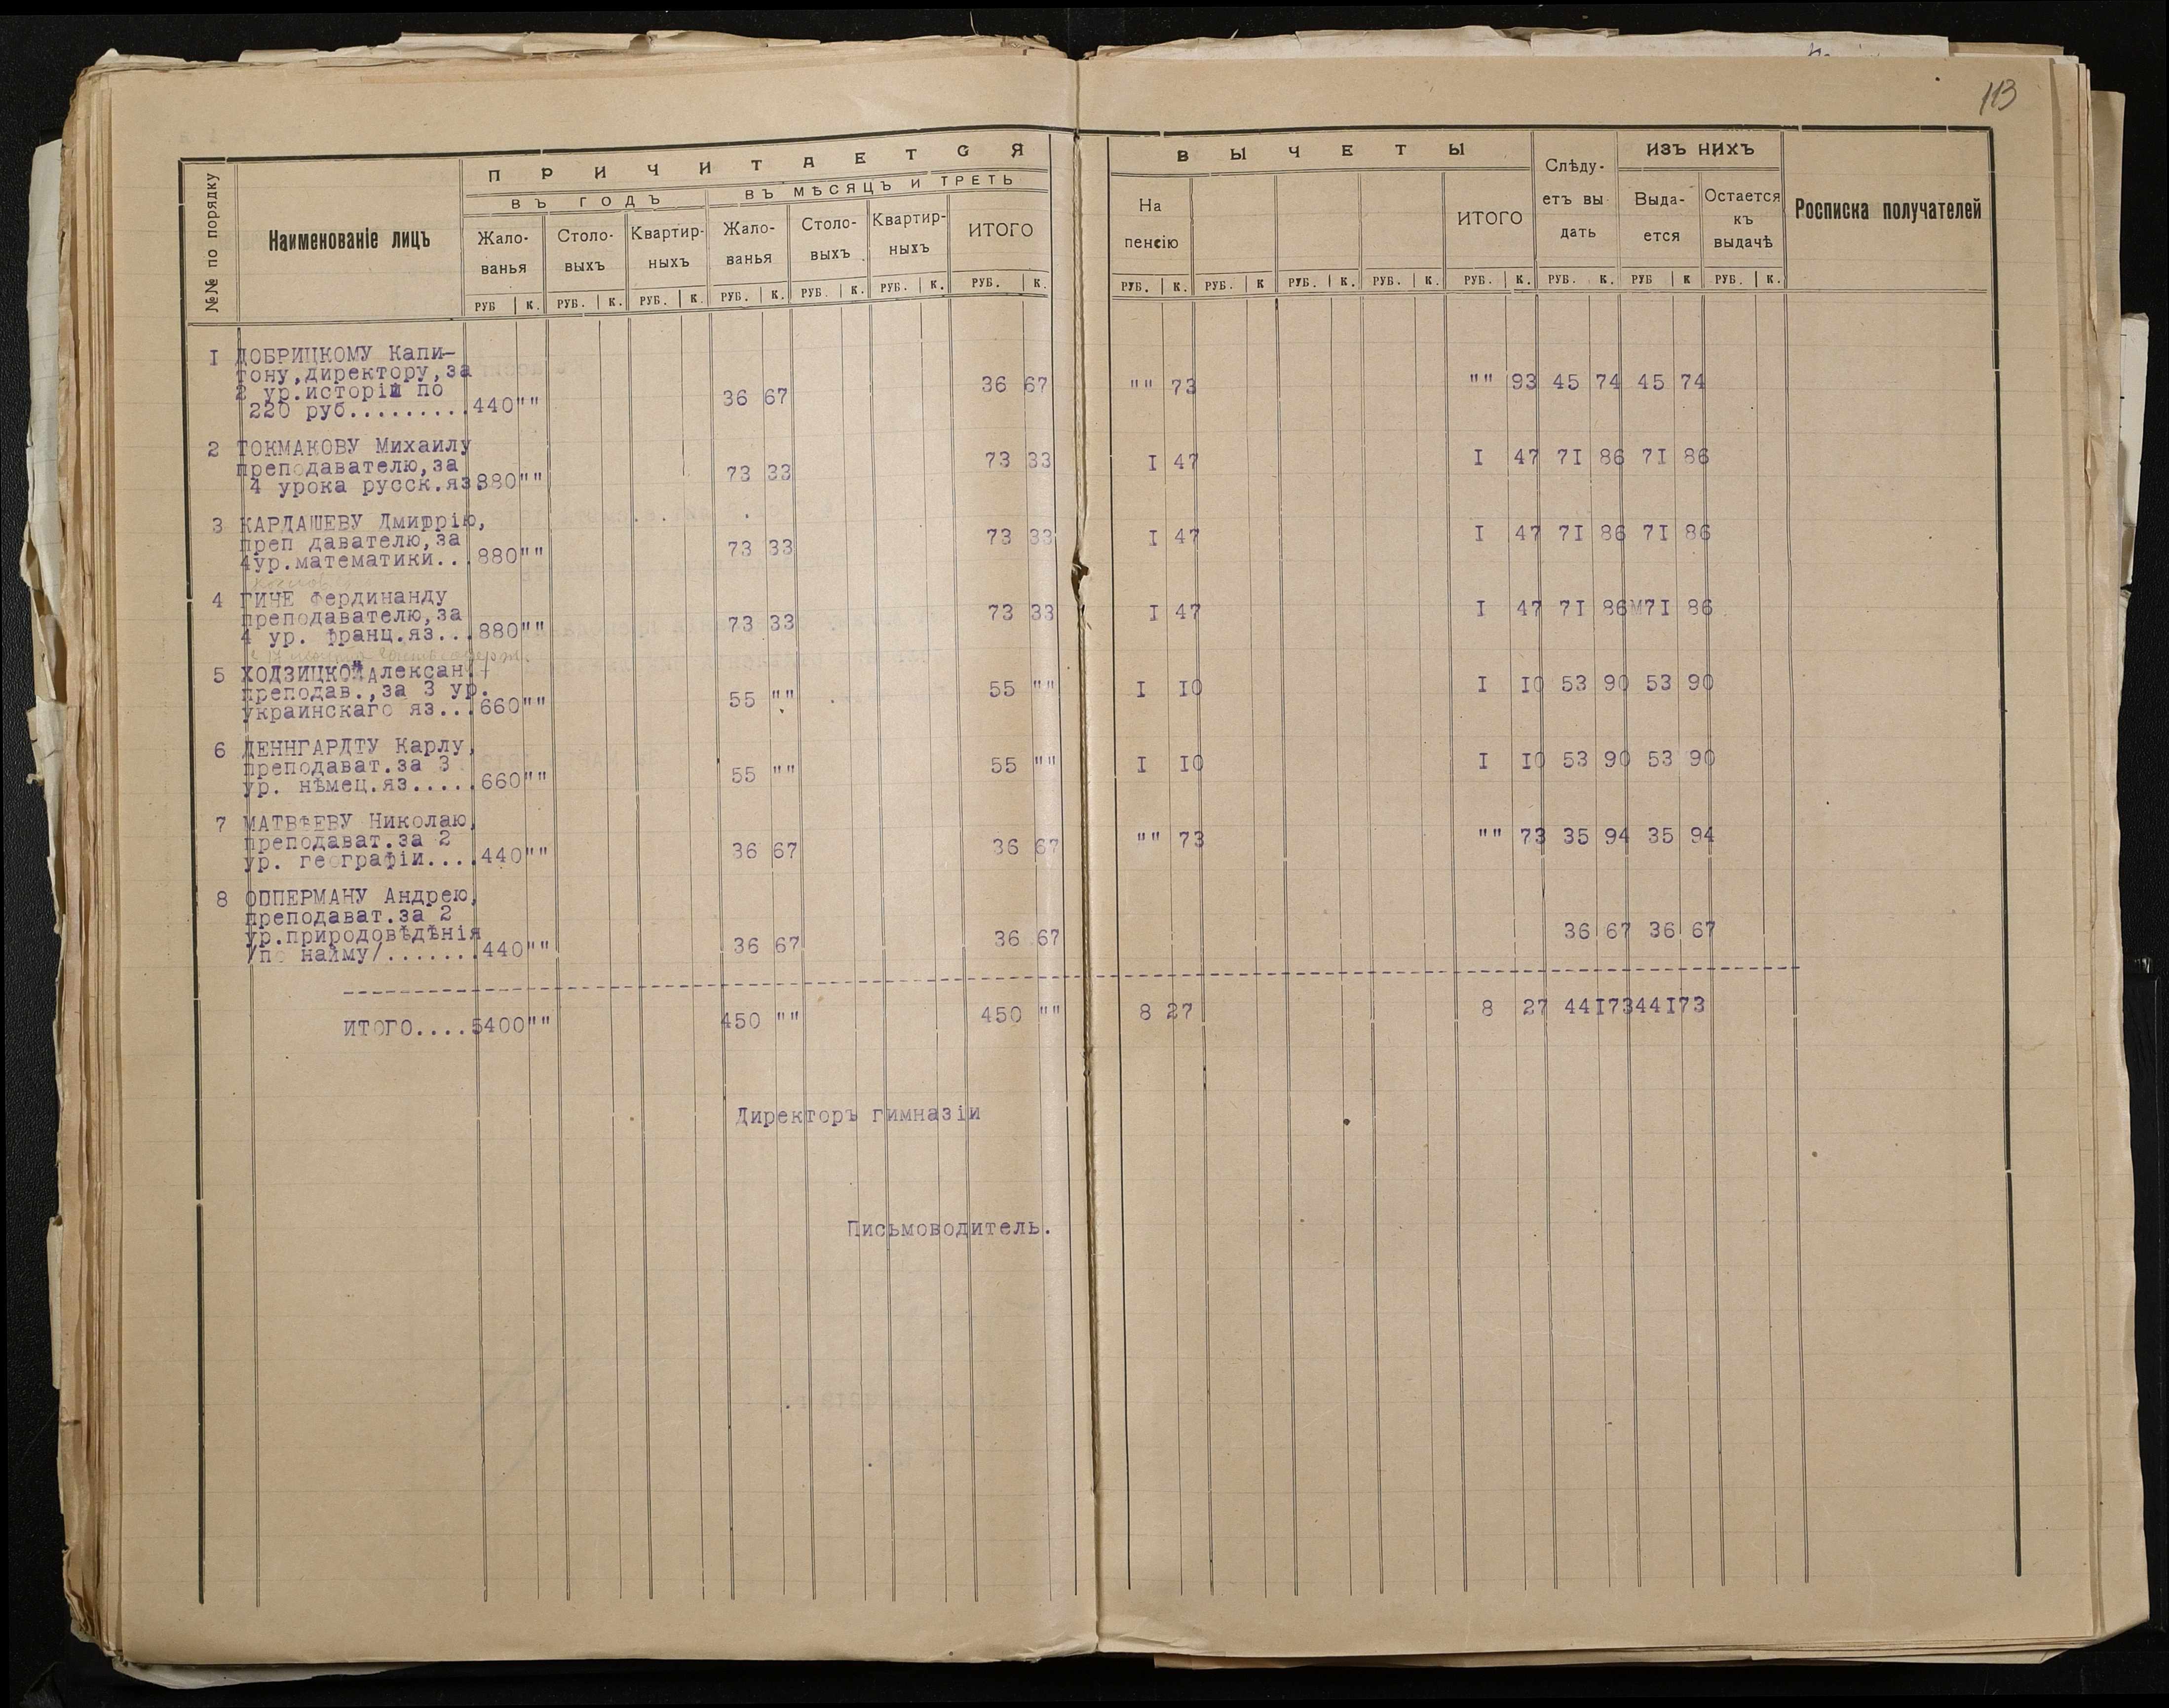 113
П Р И Ч И Т А Е Т С Я
ВЪ ГОДЪ
ВЪ МѢСЯЦЪ И ТРЕТЬ
№№ по порядку
Наименованіе лицъ
Жало-ванья
Столо-выхъ
Квартир-ныхъ
Жало-ванья
Столо-выхъ
Квартир-ныхъ
ИТОГО
РУБ К. РУБ. К. РУБ. К. РУБ. К. РУБ. К. РУБ. К. РУБ. К.
В Ы Ч Е Т Ы
На пенсію
ИТОГО
Слѣду-етъ вы-дать
ИЗЪ НИХЪ
Выда-ется
Остается къ выдачѣ
Росписка получателей
РУБ. К. РУБ. К РУБ. К. РУБ. К. РУБ. К. РУБ. К. РУБ К РУБ. К.
I ДОБРИЦКОМУ Капи-
тону,директору,за
2 ур.исторіи по
220 руб.........440"" 36 67 36 67 "" 73 "" 93 45 74 45 74
2 ТОКМАКОВУ Михаилу
преподавателю,за
4 урока русск.яз.880"" 73 33 73 33 I 47 I 47 7I 86 7I 86
3 КАРДАШЕВУ Дмитрію,
преп давателю,за
4ур.математики...880"" 73 33 73 33 I 47 I 47 7I 86 7I 86
4 ГИНЕ Фердинанду
преподавателю,за
4 ур. франц.яз...880"" 73 33 73 33 I 47 I 47 7I 86М7I 86
5 ХОДЗИЦКОЙ Алексан.
преподав.,за 3 ур.
украинскаго яз...660"" 55 "" 55 "" I I0 I I0 53 90 53 90
6 ДЕННГАРДТУ Карлу,
преподават.за 3
ур. нѣмец.яз.....660"" 55 "" 55 "" I I0 I I0 53 90 53 90
7 МАТВѢЕВУ Николаю,
преподават.за 2
ур. географіи....440"" 36 67 36 67 "" 73 "" 73 35 94 35 94
8 ОППЕРМАНУ Андрею,
преподават.за 2
ур.природовѣдѣнія
/по найму/.......440"" 36 67 36 67 36 67 36 67
ИТОГО....5400"" 450 "" 450 "" 8 27 8 27 44I7344I73
Директоръ гимназіи
Письмоводитель.